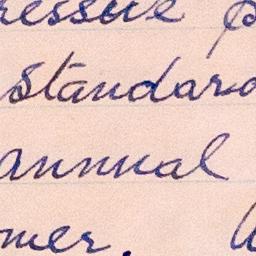 ressive p
standard
annual
mer. W